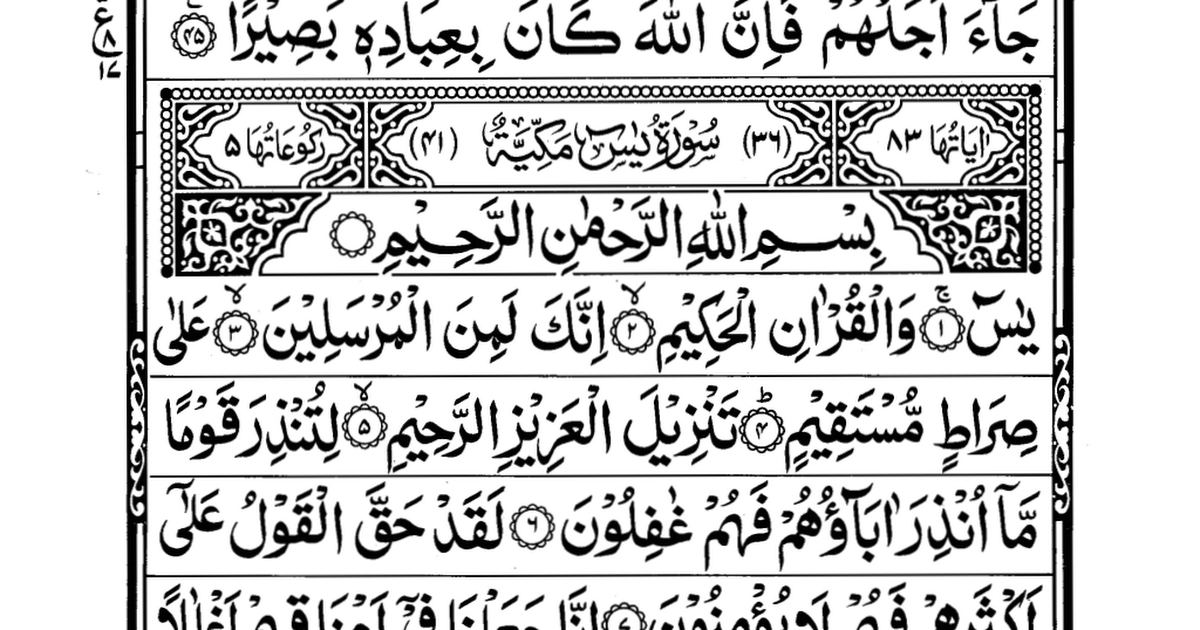 ع
٨
١٧
جَآءَ اَجَلُهُمْ فَاِنَّ اللّٰهَ كَانَ بِعِبَادِهٖ بَصِيْرًا ﴿۴۵﴾
اٰيَاتُهَا ٨٣ (٣٦) سُوْرَةُ يٰسٓ مَكِّيَّةٌ (۴١) رُكُوْعَاتُهَا ۵
بِسْمِ اللّٰهِ الرَّحْمٰنِ الرَّحِيْمِ
يٰسٓ ﴿١﴾ۚ وَالْقُرْاٰنِ الْحَكِيْمِ ﴿٢﴾ۙ اِنَّكَ لَمِنَ الْمُرْسَلِيْنَ ﴿٣﴾ۙ عَلٰى
صِرَاطٍ مُّسْتَقِيْمٍ ﴿۴﴾ؕ تَنْزِيْلَ الْعَزِيْزِ الرَّحِيْمِ ﴿۵﴾ۙ لِتُنْذِرَ قَوْمًا
مَّآ اُنْذِرَ اٰبَآؤُهُمْ فَهُمْ غٰفِلُوْنَ ﴿۶﴾ لَقَدْ حَقَّ الْقَوْلُ عَلٰٓى
اَكْثَرِهِمْ فَهُمْ لَا يُؤْمِنُوْنَ ﴿۷﴾ اِنَّا جَعَلْنَا فِيْٓ